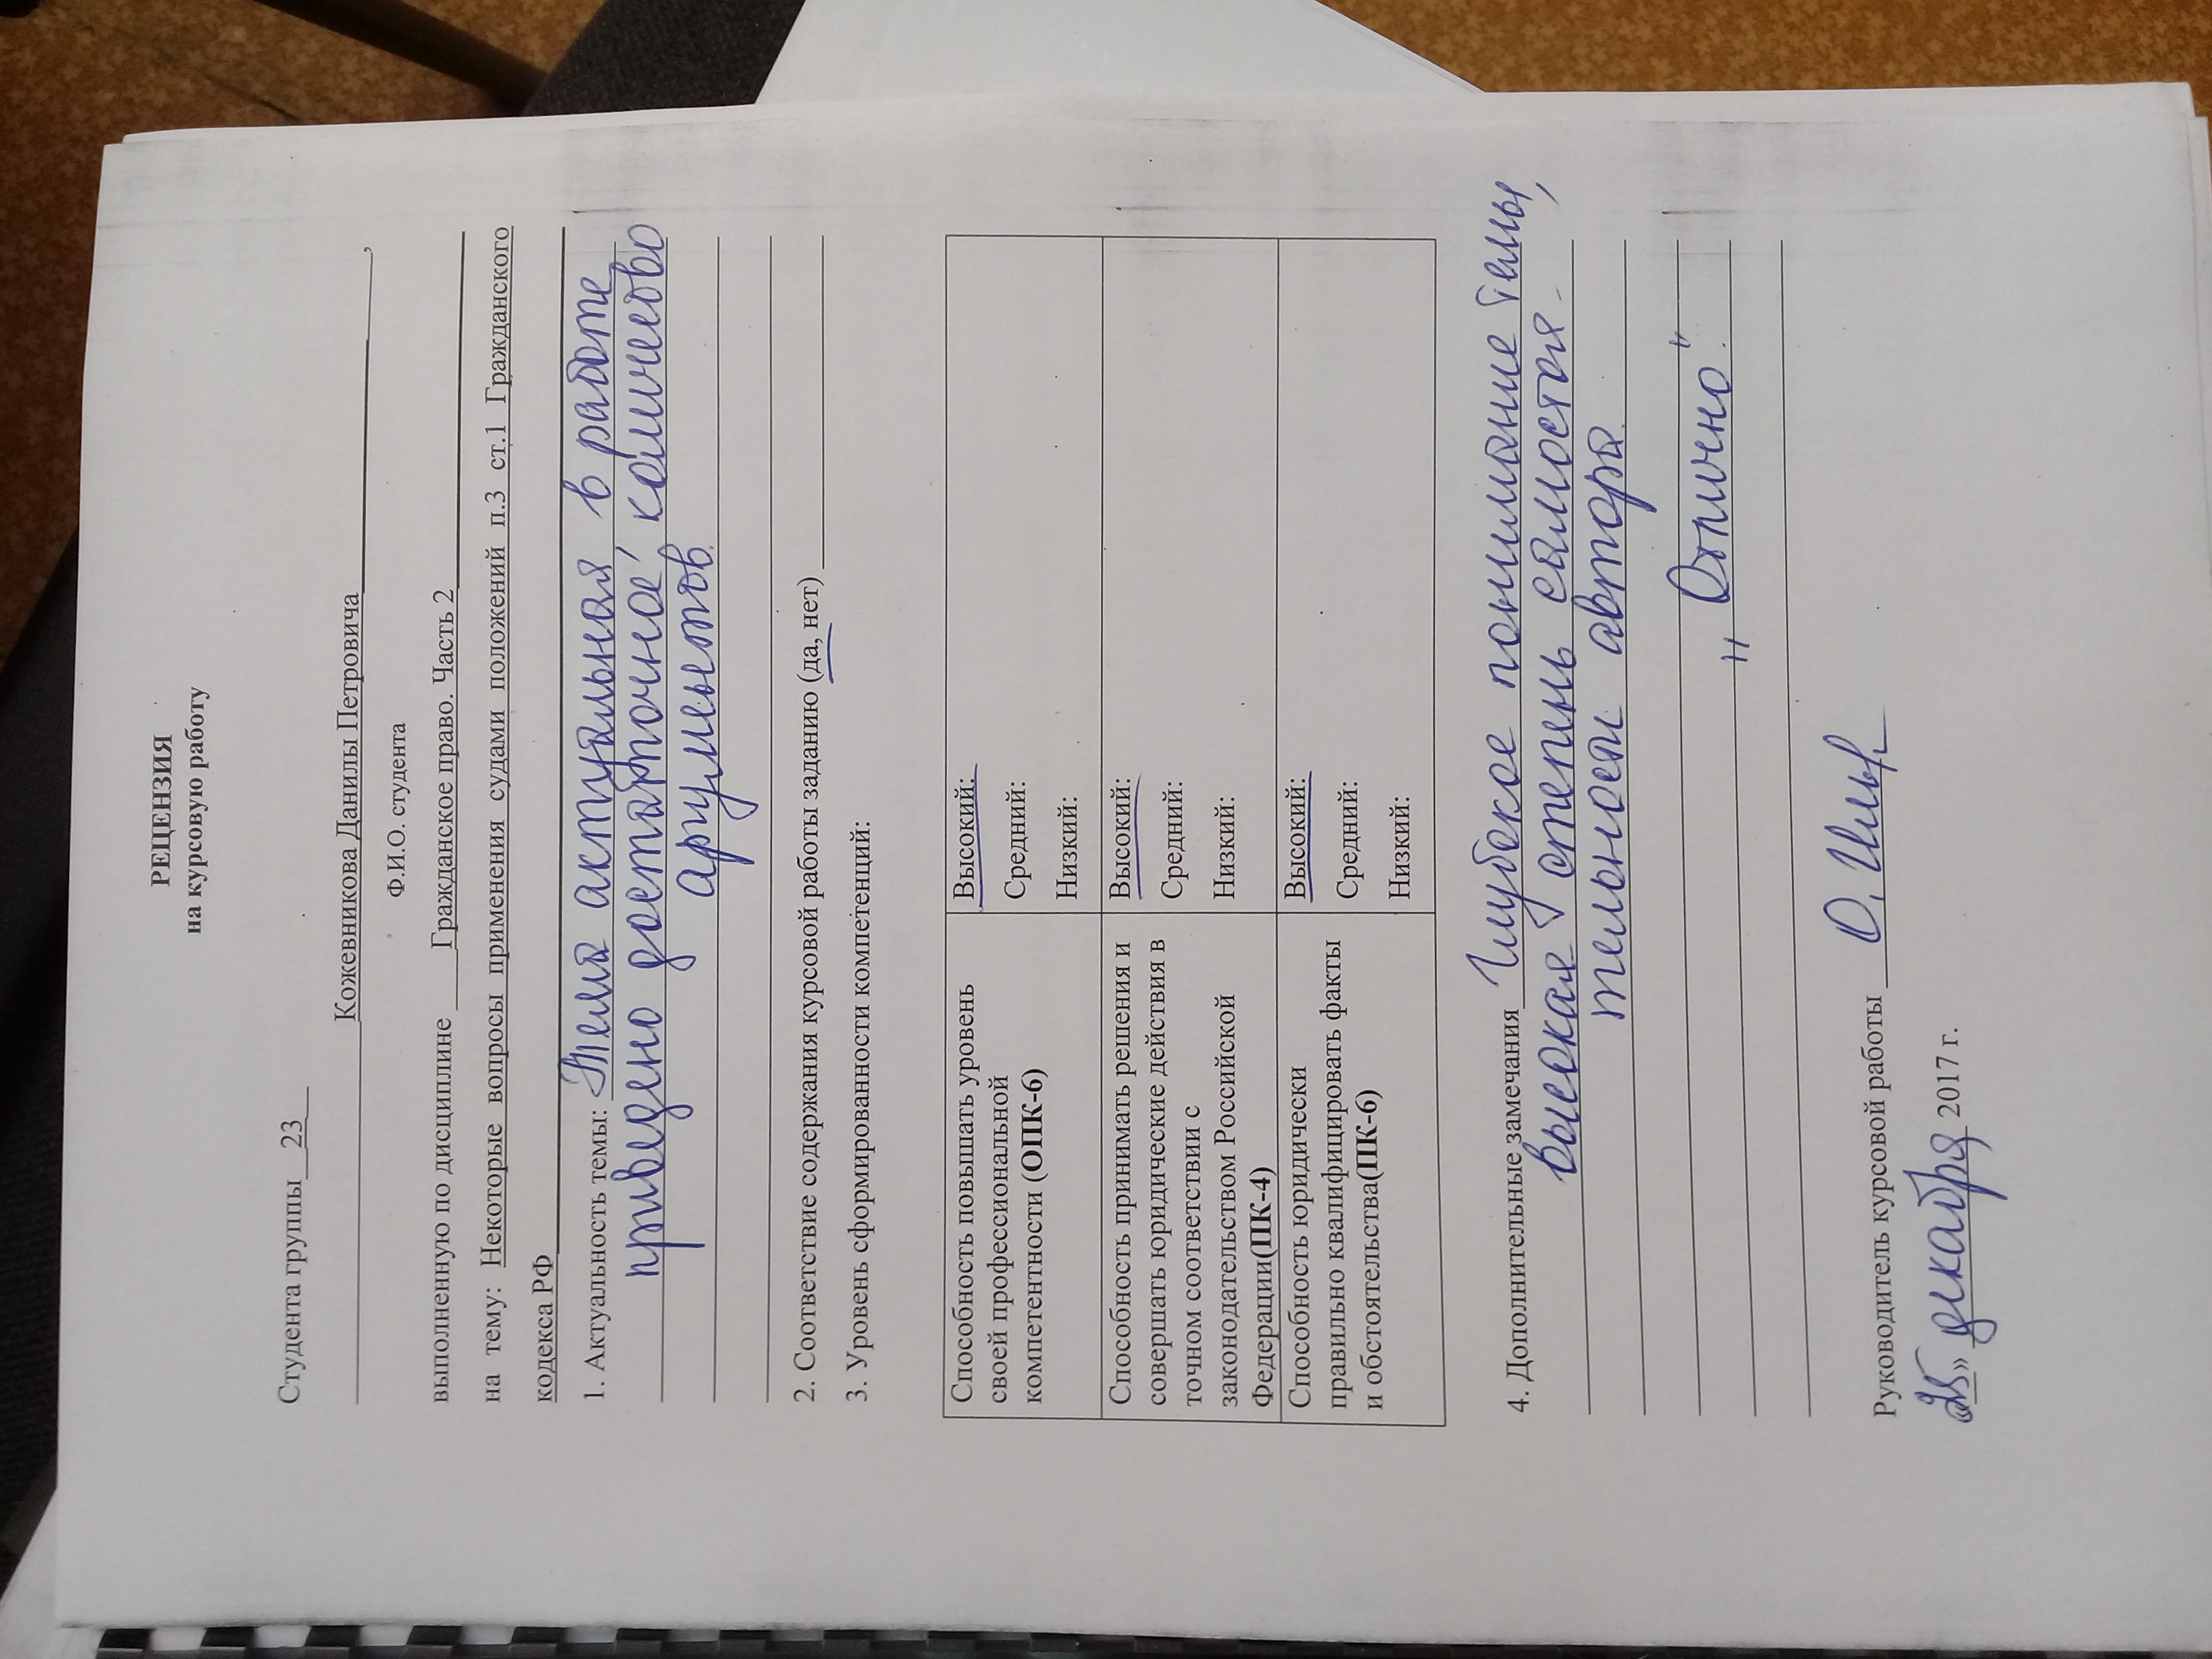 РЕЦЕНЗИЯ
на курсовую работу
Студента группы 23
Кожевникова Данилы Петровича,
Ф.И.О. студента
выполненную по дисциплине Гражданское право. Часть 2
на тему: Некоторые вопросы применения судами положений п.3 ст.1 Гражданского
кодекса РФ
1. Актуальность темы: Тема актуальная в работе
приведено достаточное количество
аргументов.
2. Соответствие содержания курсовой работы заданию (да, нет)
3. Уровень сформированности компетенций:
Способность повышать уровень
своей профессиональной
компетентности (ОПК-6)
Высокий:
Средний:
Низкий:
Способность принимать решения и
совершать юридические действия в
точном соответствии с
законодательством Российской
Федерации(ПК-4)
Высокий:
Средний:
Низкий:
Способность юридически
правильно квалифицировать факты
и обстоятельства(ПК-6)
Высокий:
Средний:
Низкий:
4. Дополнительные замечания Глубокое понимание темы,
высокая степень самостоя-
тельности автора.
„Отлично".
Руководитель курсовой работы
«25» декабря 2017 г.